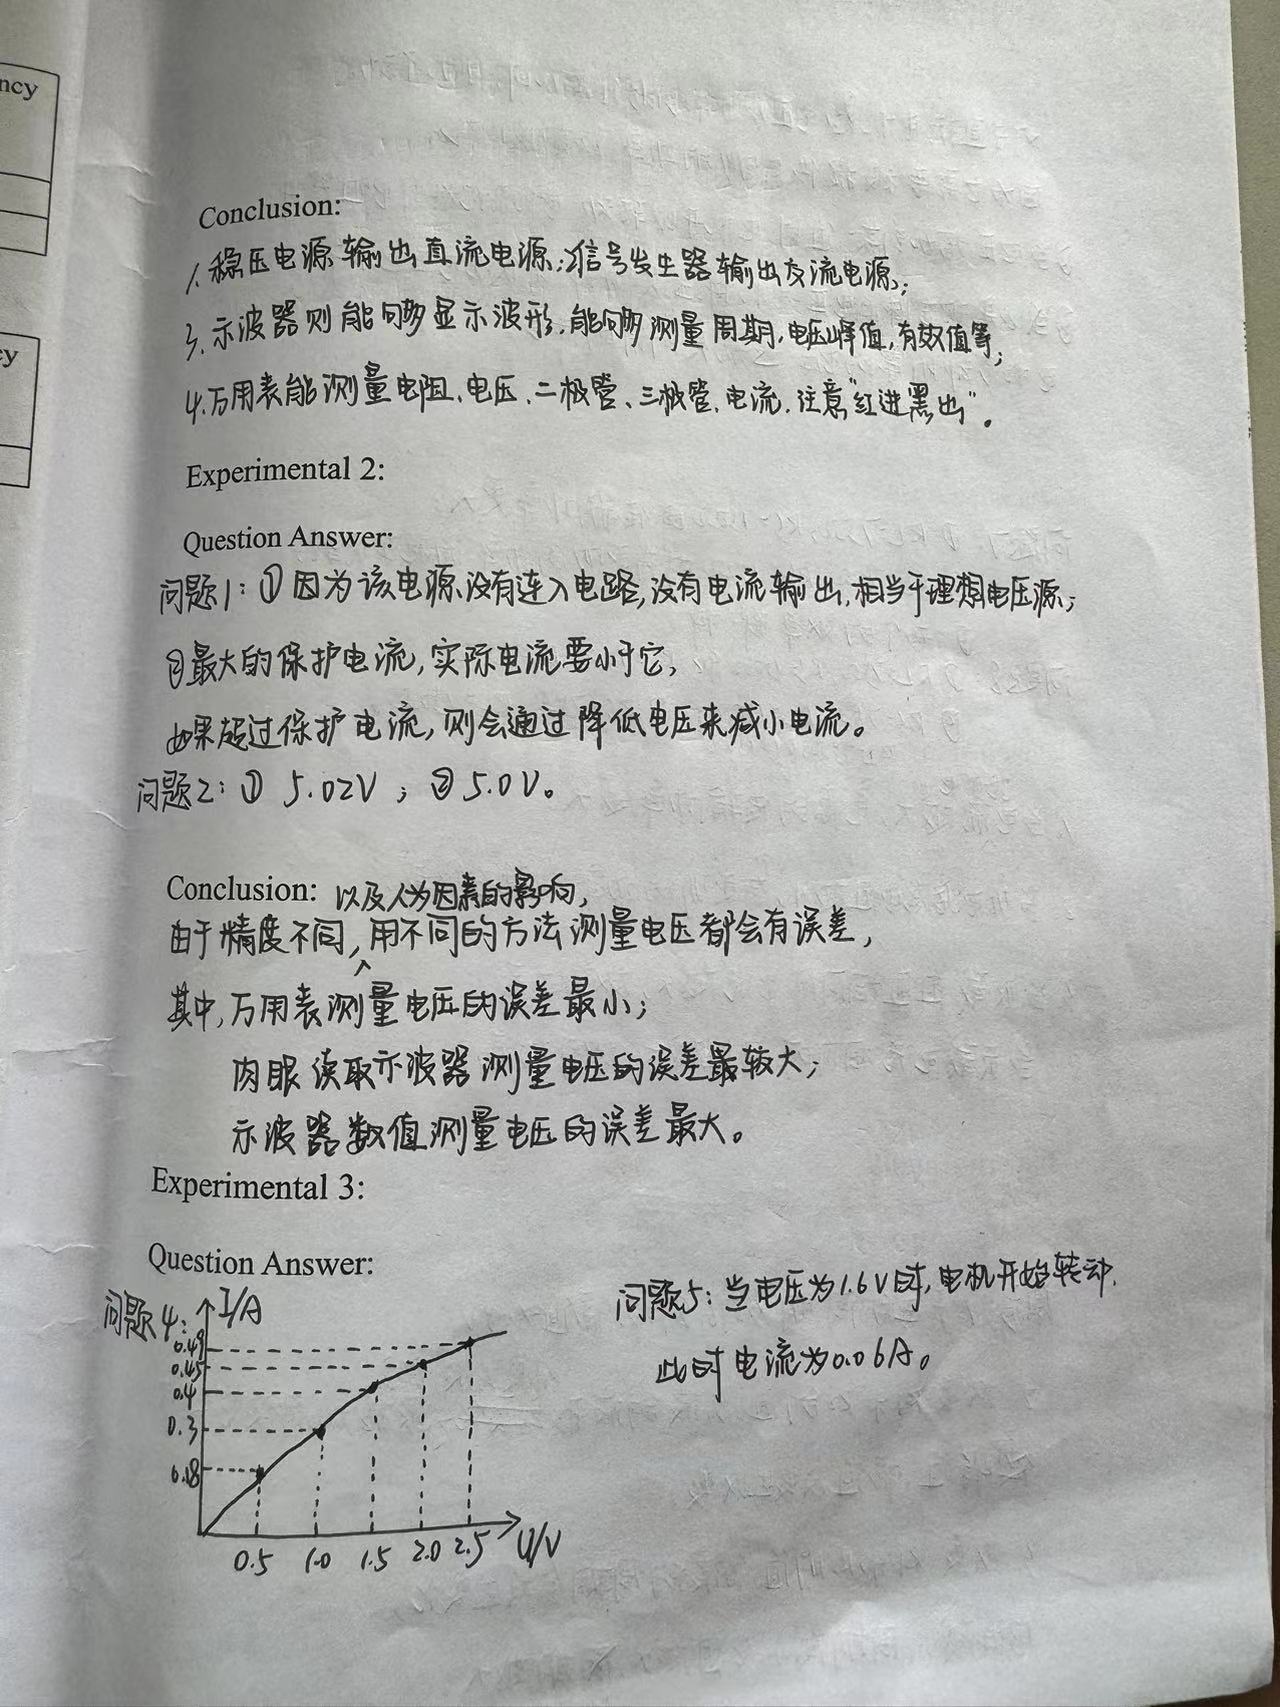 ncy
y
Conclusion:
1.稳压电源输出直流电源;2.信号发生器输出交流电源;
3.示波器则能够显示波形,能够测量周期,电压峰值,有效值等;
4.万用表能测量电阻、电压、二极管、三极管、电流.注意“红进黑出”。
Experimental 2:
Question Answer:
问题1:①因为该电源没有连入电路,没有电流输出,相当于理想电压源;
②最大的保护电流,实际电流要小于它,
如果超过保护电流,则会通过降低电压来减小电流。
问题2:① 5.02V ; ② 5.0V。
Conclusion: 以及人为因素的影响,
由于精度不同,用不同的方法测量电压都会有误差,
其中,万用表测量电压的误差最小;
肉眼读取示波器测量电压的误差最较大;
示波器数值测量电压的误差最大。
Experimental 3:
Question Answer:
问题4: I/A
0.49
0.45
0.4
0.3
0.18
0.5 1.0 1.5 2.0 2.5 U/V
问题5:当电压为1.6V时,电机开始转动.
此时电流为0.06A。